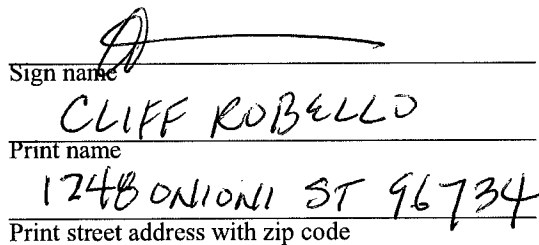 Sign name
CLIFF ROBELLO
Print name
1248 ONIONI ST 96734
Print street address with zip code